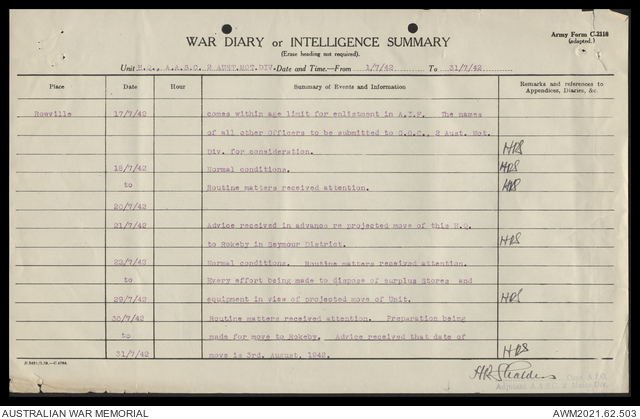 Army Form C.2118
(adapted.)
WAR DIARY or INTELLIGENCE SUMMARY
(Erase heading not required).
Unit H.Q., A.A.S.C. 2 AUST.MOT.DIV. Date and Time.—From 1/7/42 To 31/7/42
Place Date Hour Summary of Events and Information Remarks and references to Appendices, Diaries, &c.
Rowville 17/7/42 comes within age limit for enlistment in A.I.F. The names
of all other Officers to be submitted to G.O.C., 2 Aust. Mot.
Div. for consideration. HRS
18/7/42 Normal conditions. HRS
to Routine matters received attention. HRS
20/7/42
21/7/42 Advice received in advance re projected move of this H.Q.
to Rokeby in Seymour District. HRS
22/7/42 Normal conditions. Routine matters received attention.
to Every effort being made to dispose of surplus Stores and
29/7/42 equipment in view of projected move of Unit. HRS
30/7/42 Routine matters received attention. Preparation being
to made for move to Rokeby. Advice received that date of
31/7/42 move is 3rd. August, 1942. HRS
Adjutant
AUSTRALIAN WAR MEMORIAL AWM2021.62.503